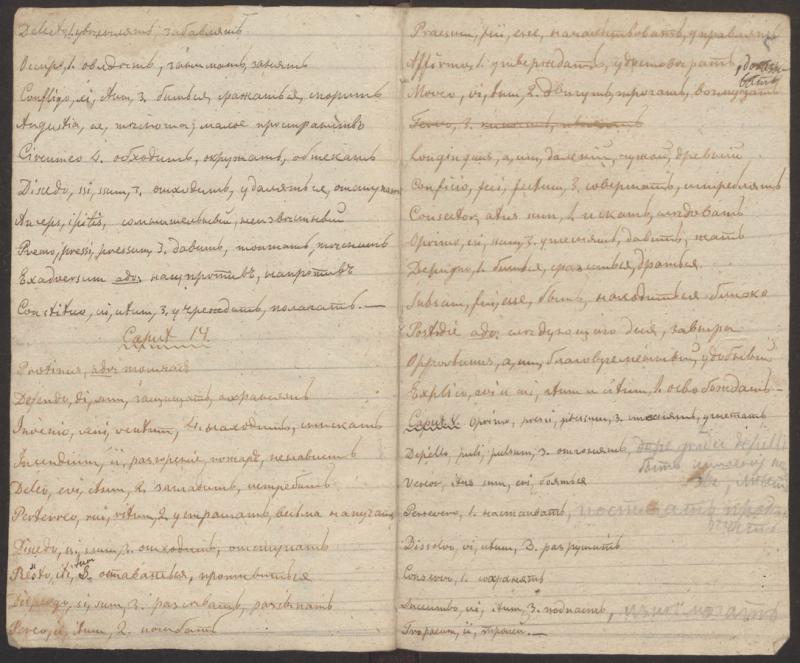 Delecto, 1. увеселять, забавлять
Occupo, 1. овладѣть, занимать, занять
Confligo, xi, ctum, 3. биться, сражаться, спорить
Angustia, ae, тѣснота, малое пространство
Circumeo 4. обходить, окружать, обтекать
Discedo, ssi, ssum, 3. отходить, удаляться, отступать
Anceps, ipitis, сомнительный, неизвѣстный
Premo, pressi, pressum, 3. давить, топтать, тѣснить
Exadversum adv. насупротивъ, напротивъ
Constituo, ui, utum, 3. учреждать, полагать. —
Caput 14.
Protinus, adv. тотчасъ
Defendo, di, sum, защищать, охранять
Invenio, veni, ventum, 4. находить, сыскать
Incendium, ii, разореніе, пожаръ, ненависть
Deleo, evi, etum, 2. загладить, истребить
Perterreo, rui, ritum, 2. устрашать, весьма напугать
Discedo, ssi, ssum, 3. отходить, отступать
Resto, iti, itum 3. оставаться, противиться
Dispergo, si, sum, 3. разсѣвать, разсыпать
Pereo, ii, itum, 2. погибать
Praesum, fui, esse, начальствовать, управлять
Affirmo, 1. утверждать, удостовѣрять,
Moveo, vi, tum, 2. двигать, трогать, возмущать
Longinquus, a, um, далекій, чужой, древній
Conficio, feci, fectum, 3. совершать, истреблять
Consector, atus sum, 1. искать, слѣдовать
Oprimo, essi, ssum, 3. утѣснять, давить, жать
Depugno, 1. биться, сразиться, драться
Subsum, fui, esse, быть, находиться близко
Postridie adv. слѣдующаго дня, завтра
Opportunus, a, um, благовременный, удобный
Explico, avi и ui, atum и citum, 1. освобождать
Caput V. Oprimo, pressi, pressum, 3. стѣснять, угнетать
Depello, puli, pulsum, 3. отгонять, de gradu depelli
быть
Vereor, itus sum, eri, бояться
Persevero, 1. настаивать,
Dissolvo, vi, utum, 3. разрушить
Conservo, 1. сохранять
Succumbo, ui, itum, 3. подпасть, изнемогать
Tropaeum, ii, трофей. —